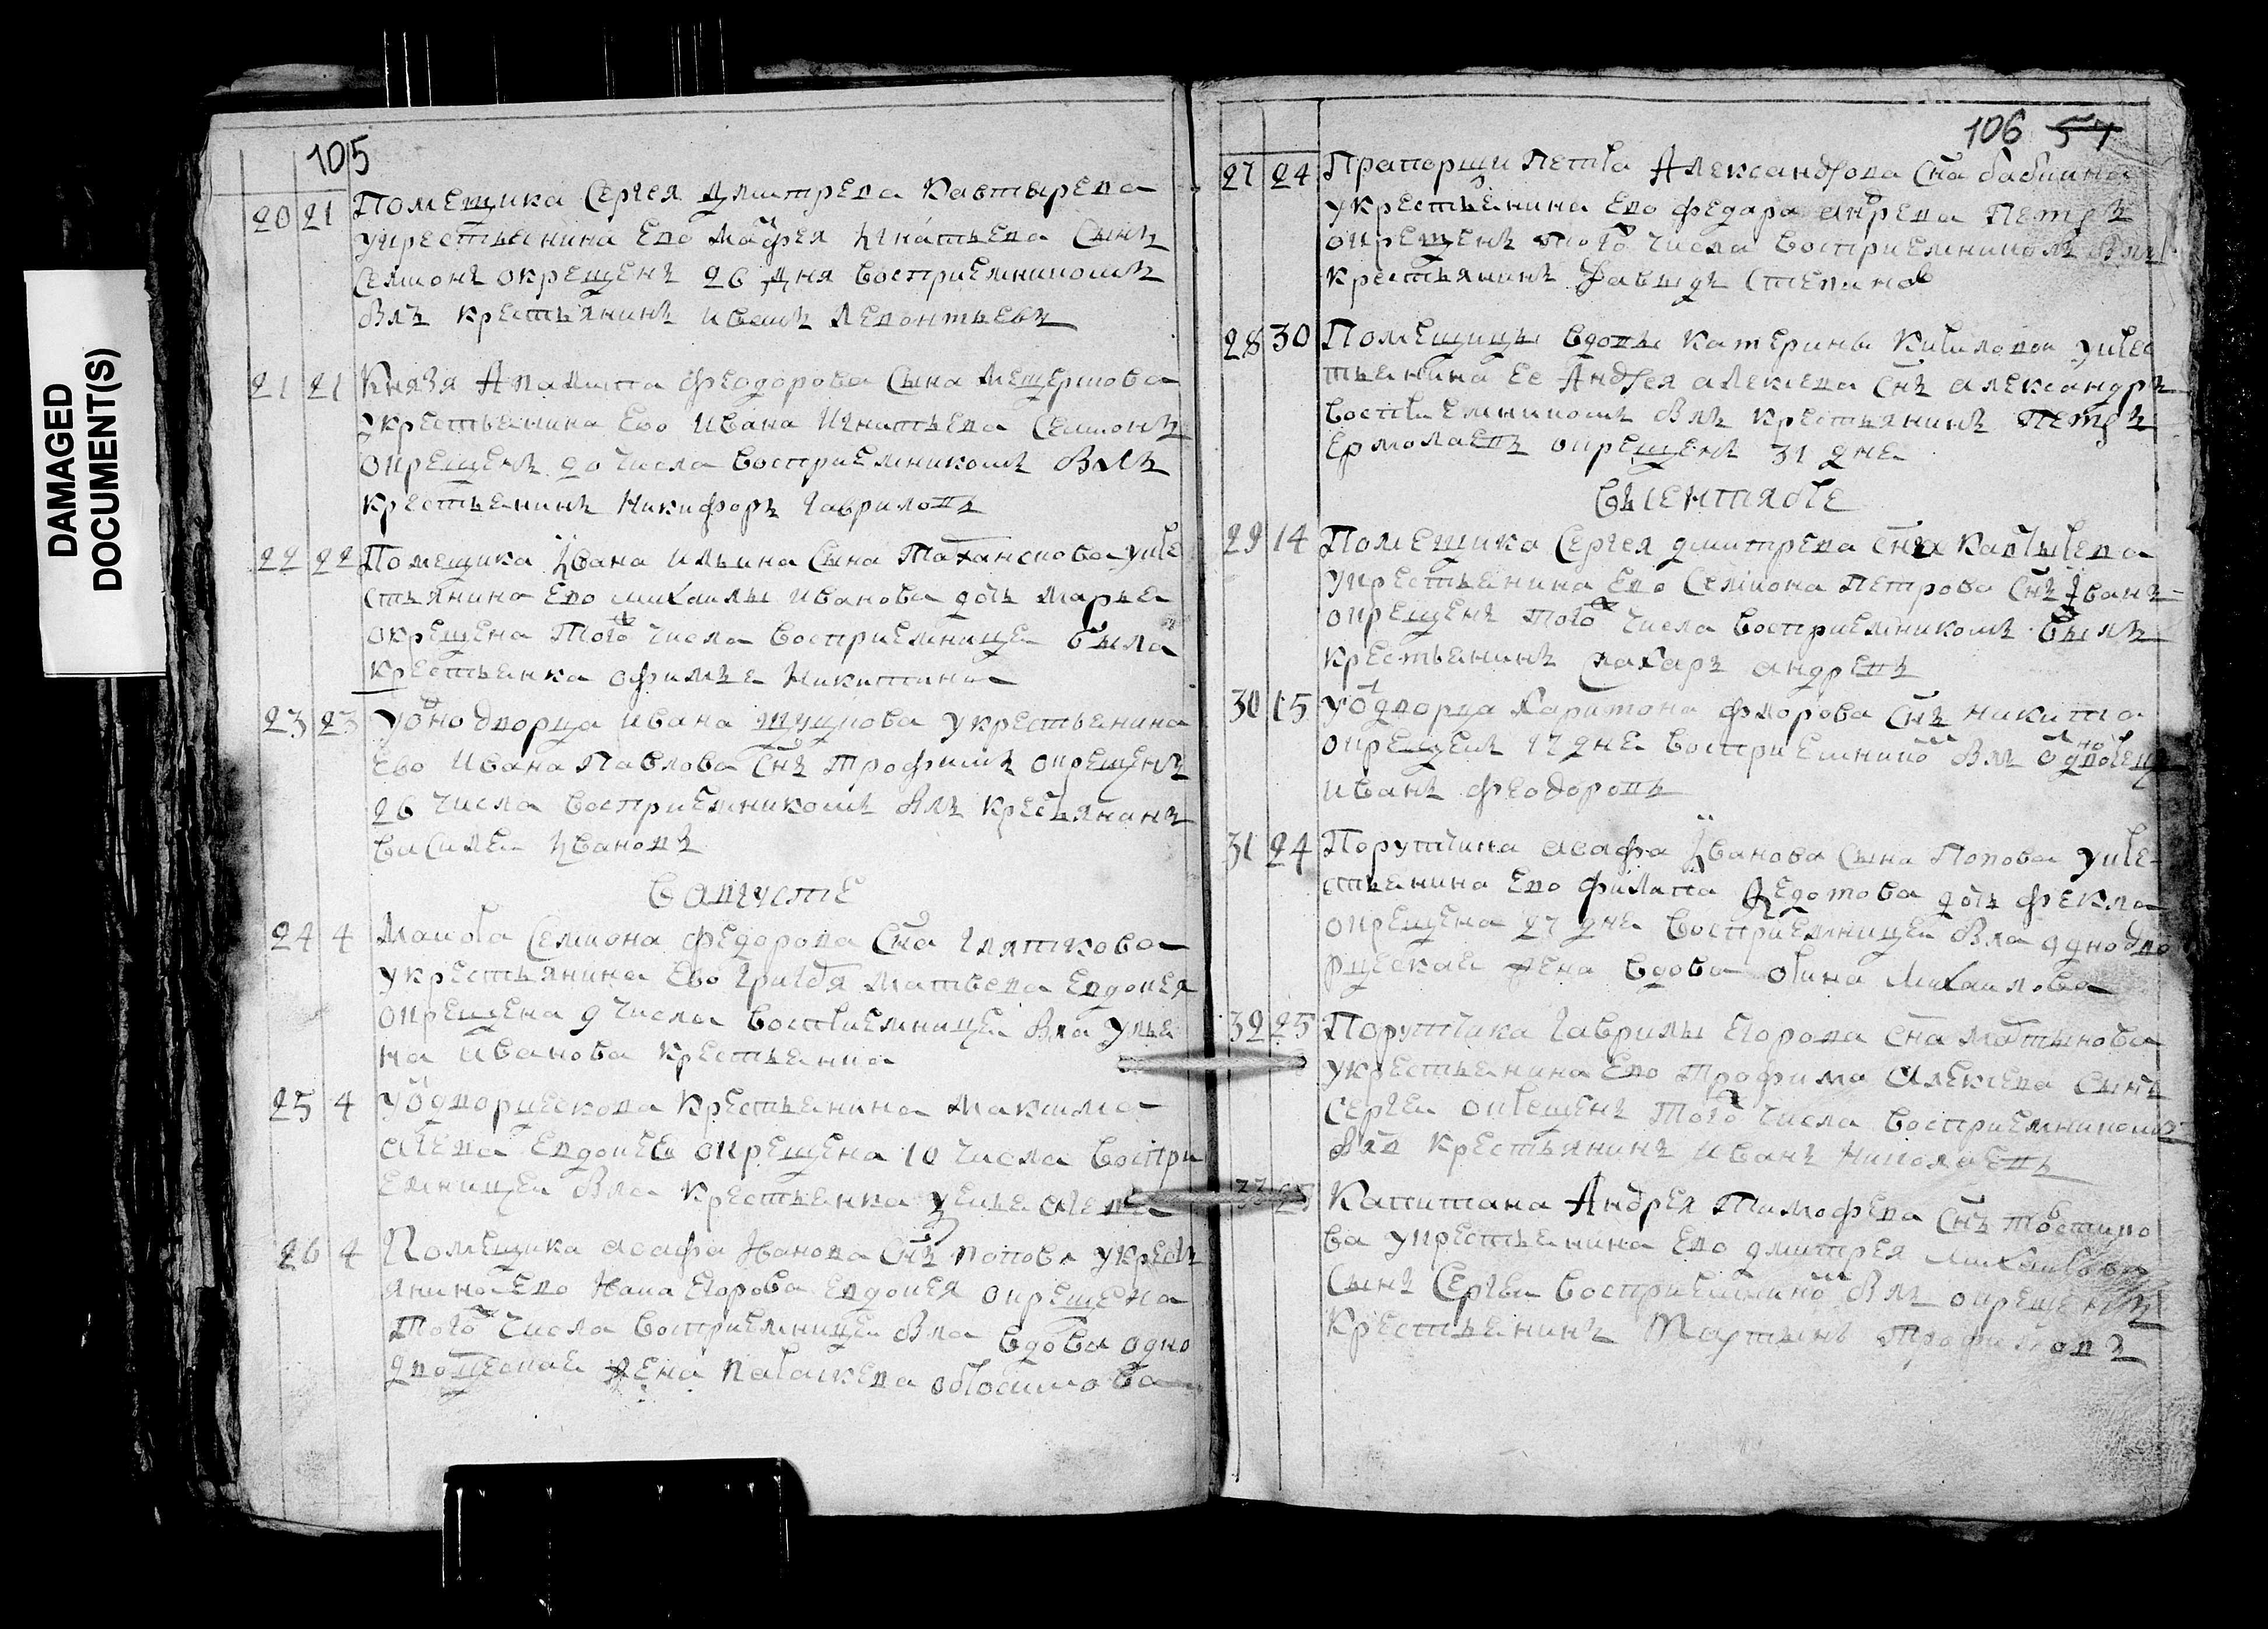 DAMAGED
DOCUMENT(S)
105
20 21 Помещика Сергея Дмитрева Кавтырева
укрестьенина Ево Матфея Игнатьева Сынъ
Семионъ окрещенъ 26 дня восприемникомъ
былъ крестьянинъ иванъ Левонтьевъ
21 21 Князя Филиппа феодорова Сына Мещерскова
укрестьенина Ево Ивана Игнатьева Семионъ
окрещенъ числа восприемникомъ былъ
крестьенинъ Никифоръ Гавриловъ
22 22 Помещика Ивана Ильина Сына укре
стьянина Ево михаилы иванова дочь Марья
окрещена того числа восприемницеи была
крестьенка офимья Никитина
23 23 Уоднодворца ивана укрестьенина
Ево Ивана Павлова Снъ трофимъ окрещенъ
26 числа восприемникомъ былъ крестьянинъ
василеи Ивановъ
в августе
24 4 Маиора Семиона федорова Сна
укрестьянина Ево Григорья Матвева Евдокея
окрещена 9 числа восприемницеи была улья
на Иванова крестьенка
25 4 Уоднодворческова крестьенина Максима
Евдокея окрещена 10 числа воспри
емницеи была крестьенка
26 4 Помещика асафа Иванова Снъ попова укресть
янина Ево Егорова Евдокея окрещена
того числа восприемницеи была вдова одно
дворческая жена параскева
106 57
27 24 Прапорщи Петра Александрова Сна бабкина
укрестьенина Ево федора андрева Петръ
окрещенъ того числа восприемникомъ былъ
крестьянинъ Давыдъ Степинов
28 30 Помещицы вдовы Катерины укрес
тьенина Ее Андрея алексева Снъ александръ
восприемникомъ былъ крестьянинъ Петръ
Ермолаевъ окрещенъ 31 дня
в сентябре
29 14 Помещика Сергея дмитрева Сна Кавтырева
укрестьенина Ево Семиона петрова Снъ Иванъ
окрещенъ того числа восприемникомъ былъ
крестьенинъ захаръ андревъ
30 15 Уоднодворца Харитона фларова Снъ никита
окрещенъ 17 дня восприемником былъ однодворецъ
иванъ феодоровъ
31 24 Порутчика асафа Иванова Сына Попова укре
стьенина Ево филиппа Федотова дочь фекла
окрещена 27 дня восприемницеи была однодво
рцеская жена вдова Михаилова
32 25 Порутчика Гаврилы Егорова Сна Мартынова
укрестьенина Ево трофима алексева Сынъ
Сергеи окрещенъ того числа восприемникомъ
былъ крестьянинъ иванъ Николаевъ
33 25 Капитана Андрея Тимофева Снъ
ва укрестьенина Ево дмитрея михаилова
Сынъ Сергеи восприемником былъ окрещенъ
крестьенинъ Мартынъ трофимовъ